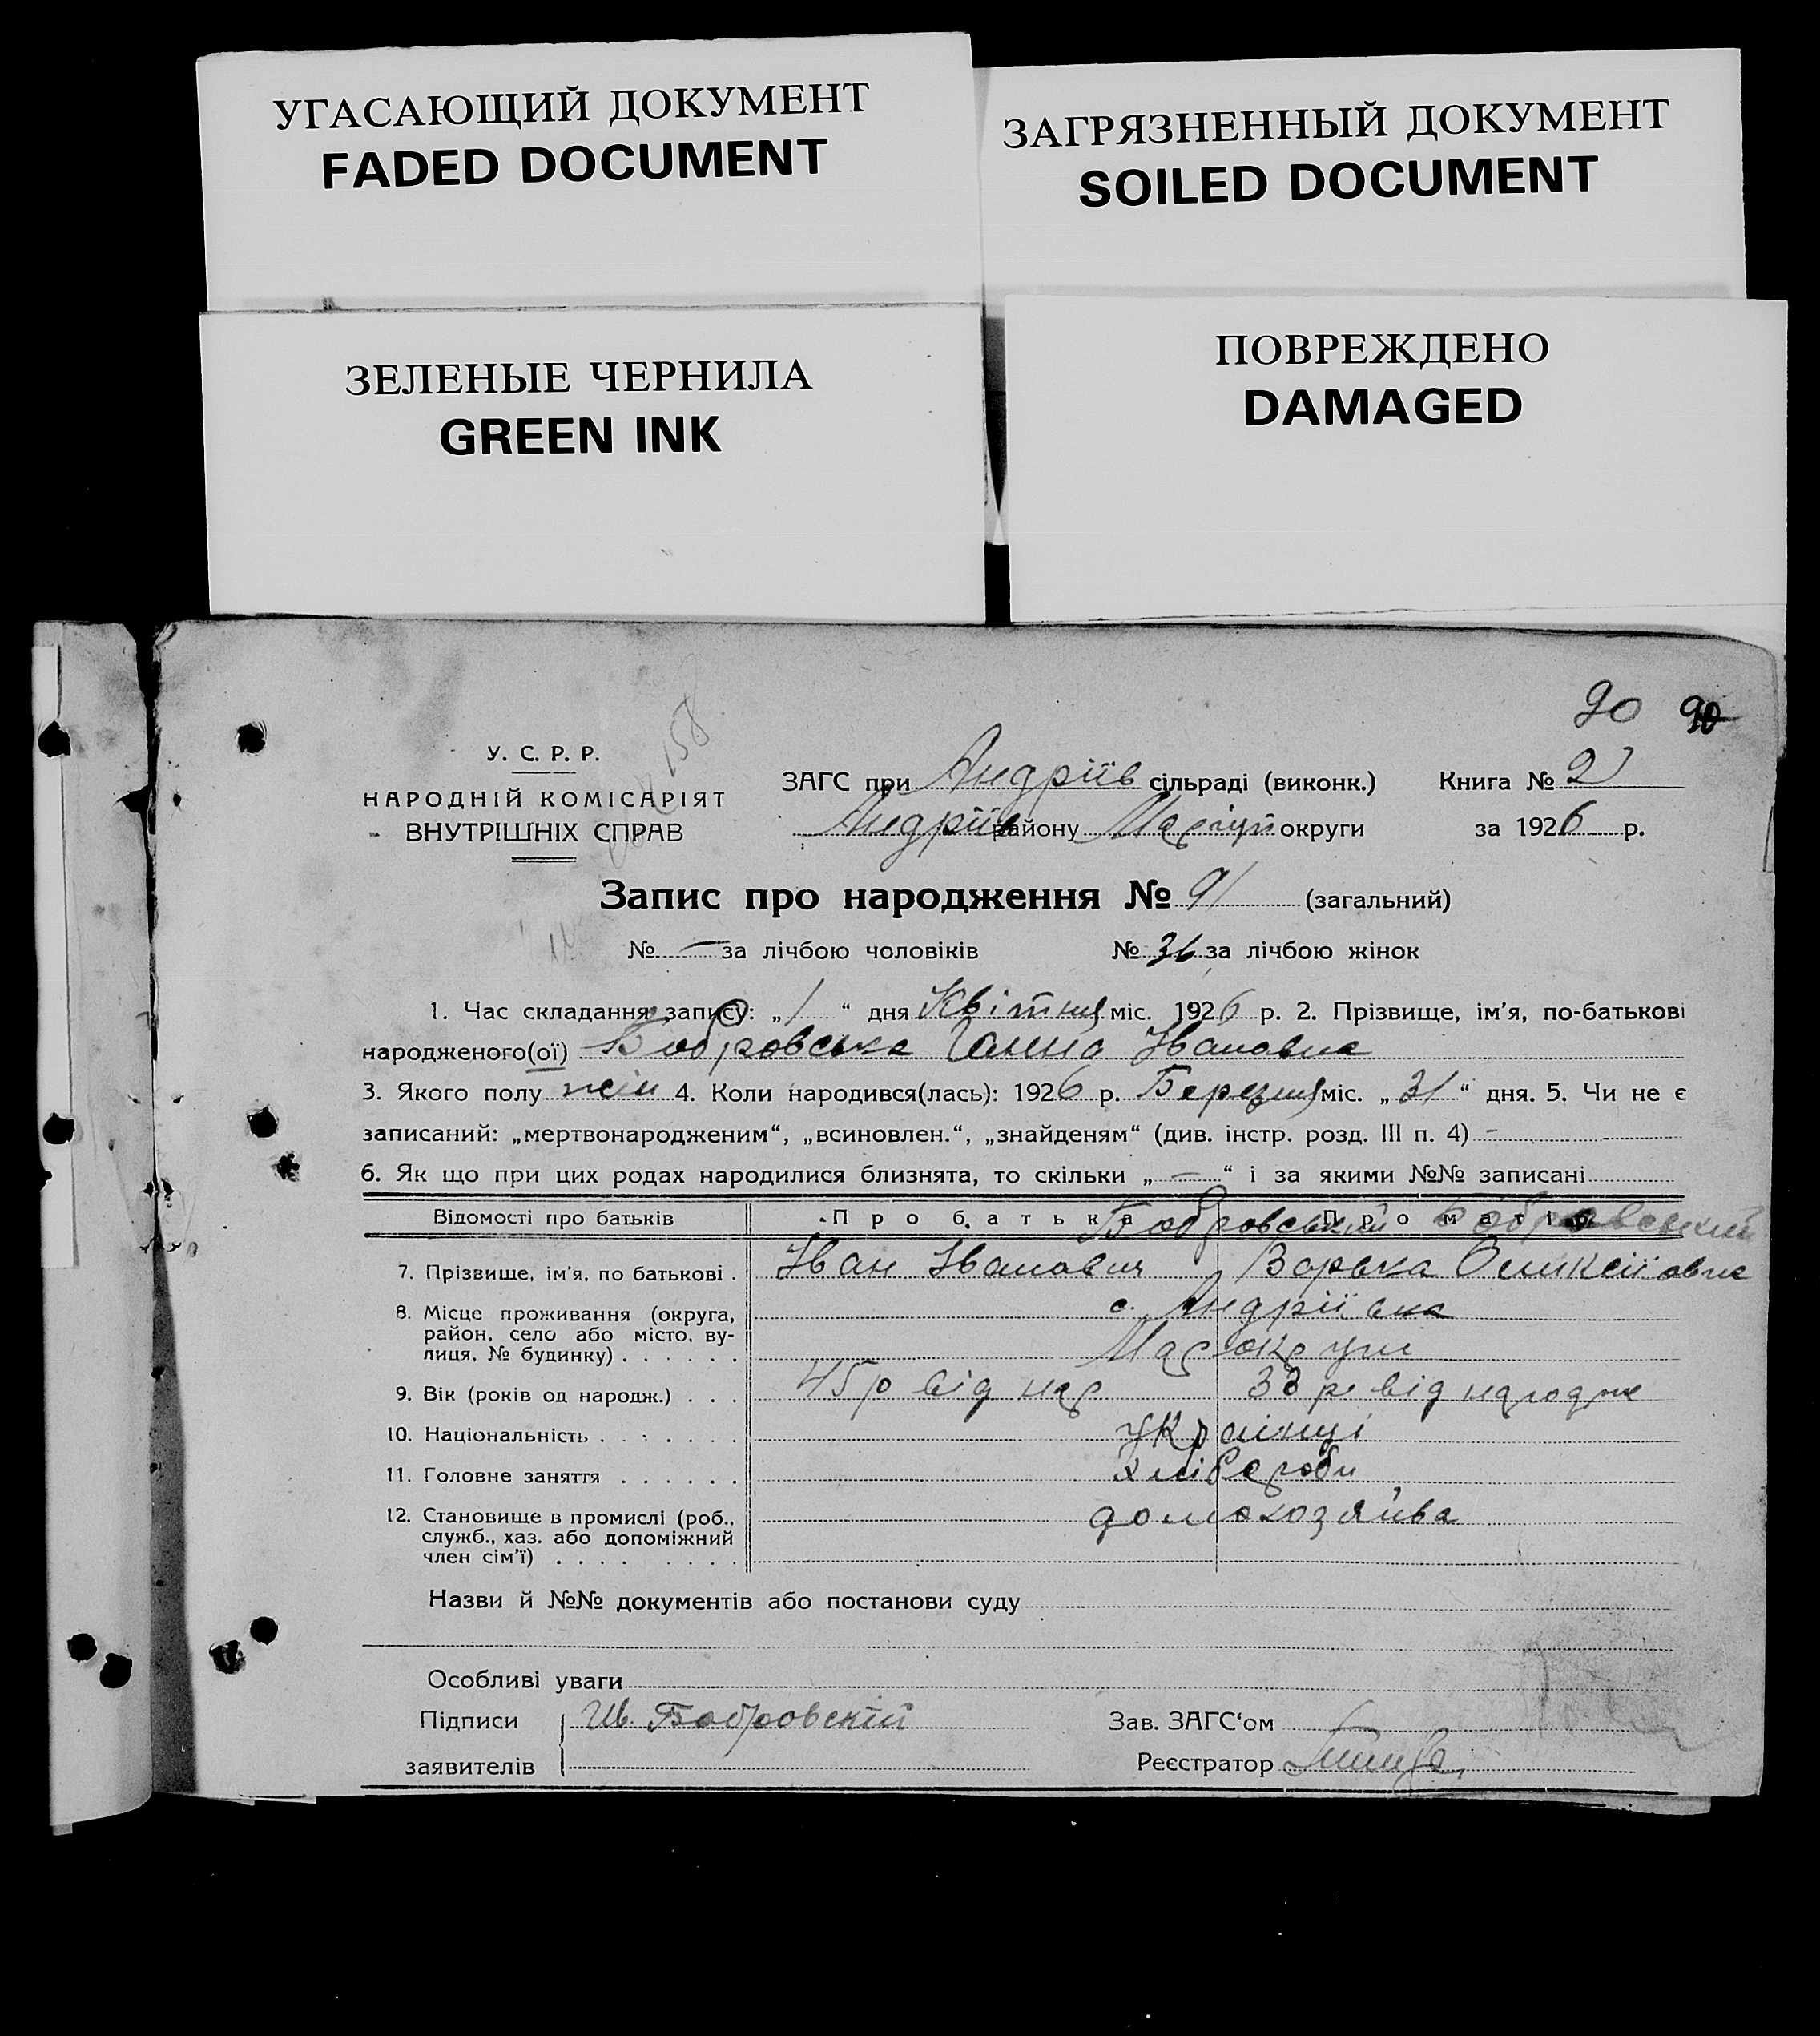 УГАСАЮЩИЙ ДОКУМЕНТ
FADED DOCUMENT
ЗАГРЯЗНЕННЫЙ ДОКУМЕНТ
SOILED DOCUMENT
ЗЕЛЕНЫЕ ЧЕРНИЛА
GREEN INK
ПОВРЕЖДЕНО
DAMAGED
90 90
У. С. Р. Р.
НАРОДНІЙ КОМІСАРІЯТ
ВНУТРІШНІХ СПРАВ
158
ЗАГС при Андріїв сільраді (виконк.) Книга № 2
Андріїв району округи за 1926 р.
Запис про народження № 91 (загальний)
№ — за лічбою чоловіків № 36 за лічбою жінок
1. Час складання запису: „1“ дня Квітня міс. 1926 р. 2. Прізвище, ім'я, по-батькові
народженого(ої) Бобровська Ганна Івановна
3. Якого полу жін 4. Коли народився(лась): 1926 р. Березня міс. „31“ дня. 5. Чи не є
записаний: „мертвонародженим“, „всиновлен.“, „знайденям“ (див. інстр. розд. III п. 4) -
6. Як що при цих родах народилися близнята, то скільки „—“ і за якими №№ записані
Відомості про батьків Про батька Про матір
Бобровський Бобровський
7. Прізвище, ім'я, по батькові . Іван Іванович Варвка Оликсіївна
8. Місце проживання (округа, район, село або місто, вулиця, № будинку) . . . . . . с. Андріївка
Мар округи
9. Вік (років од народж.) . . . 45 р від нар 33 р від народж
10. Національність . . . . . . . українці
11. Головне заняття . . . . . . хлібороби
12. Становище в промислі (роб., служб., хаз. або допоміжний член сім'ї) . . . . . . . . домохозяйва
Назви й №№ документів або постанови суду
Особливі уваги
Підписи Ив. Бобровскій Зав. ЗАГС‘ом
заявителів Реєстратор